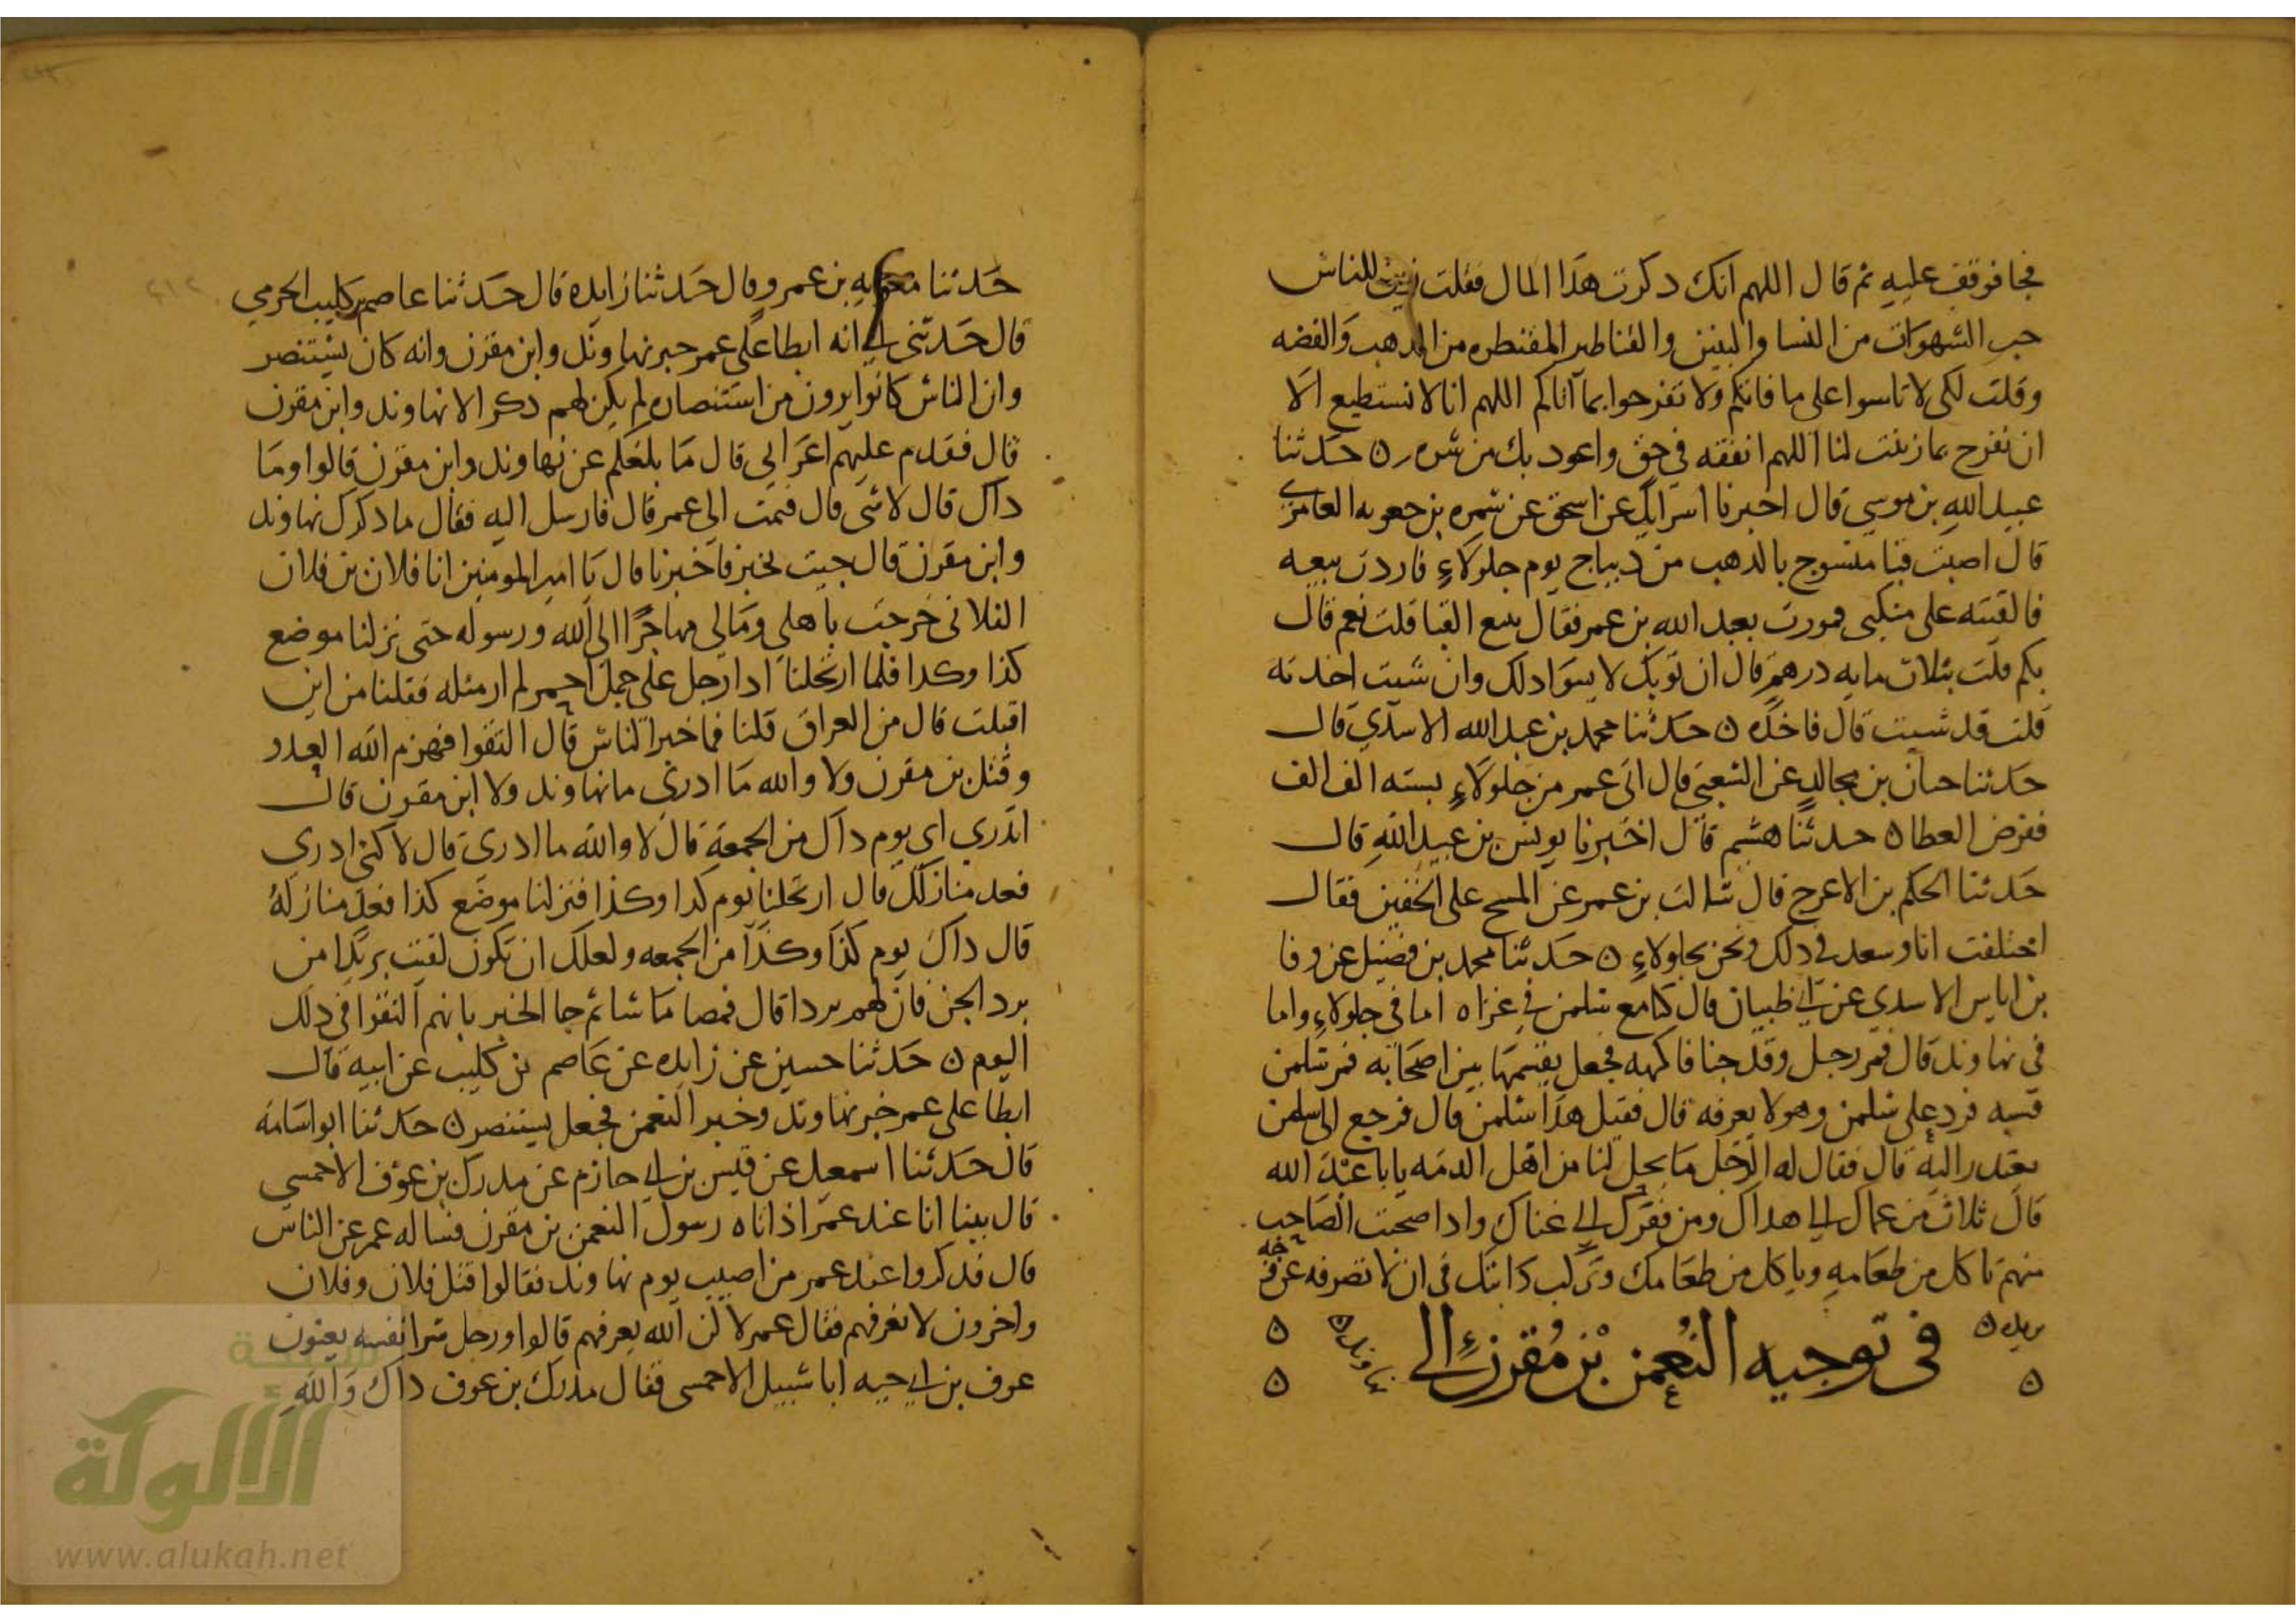 فجا فوقف عليه ثم قال اللهم انك ذكرت هذا المال فقلت زين للناس
حب الشهوات من النسا والبنين والقناطير المقنطره من الذهب والفضه
وقلت لكي لا تاسوا على ما فاتكم ولا تفرحوا بما آتاكم اللهم انا لا نستطيع الا
ان نفرح بما زينت لنا اللهم انفقه في حق واعوذ بك من شره ن حدثنا
عبيد الله بن موسي قال اخبرنا اسرايل عن اسحق عن سمره بن جعوبه العامري
قال اصبت قبا منسوج بالذهب من ديباج يوم جلولاءِ فاردت بيعه
فالقيته على منكبى فمررت بعبد الله بن عمر فقال تبيع القبا قلت نعم قال
بكم قلت بثلاث مايه درهم قال ان ثوبك لا يسوا ذلك وان شيت اخذته
قلت قد شيت قال فاخذه ن حدثنا محمد بن عبد الله الاسدي قال
حدثنا حبان بن مجالد عن الشعبي قال اتى عمر من جلولاءِ بسته الف الف
ففرض العطا ن حدثنا هشيم قال اخبرنا يونس بن عبيد الله قال
حدثنا الحكم بن الاعرج قال سالت بن عمر عن المسح على الخفين فقال
اختلفت انا وسعد في ذلك ونحن بجلولاءِ ن حدثنا محمد بن فضيل عن وفا
بن اياس الاسدي عن ابي ظبيان قال كنا مع سلمن في غزاه اما في جلولاءِ واما
في نهاوند قال فمر رجل وقد جنا فاكهه فجعل يقسمها بين اصحابه فمر سلمن
فسبه فرد على سلمن وهو لا يعرفه قال فقيل هذا سلمن قال فرجع الى سلمن
يعتذر اليه قال فقال له الرجل ما يحل لنا من اهل الذمه يابا عبد الله
قال ثلاث من عماك الى هداك ومن فقرك الى غناك واذا صحبت الصاحب
منهم تاكل من طعامه وياكل من طعامك وتركب دابتك في ان لا تصرفه عن وجه
يريده ن
في توجيه النعمن بن مقرن الى نهاوند ن
حدثنا معويه بن عمرو قال حدثنا زايده قال حدثنا عاصم بن كليب الجرمي
قال حدثني ابي انه ابطا على عمر خبر نهاوند وابن مقرن وانه كان يستنصر
وان الناس كانوا يرون من استنصاره لم يكن لهم ذكر الا نهاوند وابن مقرن
قال فقدم عليهم اعرابي قال ما بلغكم عن نهاوند وابن مقرن قالوا وما
ذاك قال لا شى قال فنمت الى عمر قال فارسل اليه فقال ما ذكرك نهاوند
وابن مقرن قال جيت بخبر فاخبرنا قال يا امير المومنين انا فلان بن فلان
الفلاني خرجت باهلي ومالي مهاجرًا الى الله ورسوله حتى نزلنا موضع
كذا وكذا فلما ارتحلنا اذا رجل على جمل احمر لم ار مثله فقلنا من اين
اقبلت قال من العراق قلنا فما خبر الناس قال التقوا فهزم الله العدو
وقتل بن مقرن ولا والله ما ادري ما نهاوند ولا ابن مقرن قال
اتدري اي يوم ذاك من الجمعة قال لا والله ما ادري قال لا كني ادري
فعد منازلك قال ارتحلنا يوم كذا وكذا فنزلنا موضع كذا فعد منازله
قال ذاك يوم كذا وكذا من الجمعه ولعلك ان تكون لقيت بريدا من
برد الجن فان لهم بردا قال فمضا ما شا ثم جا الخبر بانهم التقوا في ذلك
اليوم ن حدثنا حسين عن زايده عن عاصم بن كليب عن ابيه قال
ابطا على عمر خبر نهاوند وخبر النعمن فجعل يستنصر ن حدثنا ابو اسامه
قال حدثنا اسمعيل عن قيس بن ابي حازم عن مدرك بن عوف الاحمسي
قال بينا انا عند عمر اذ اتاه رسول النعمن بن مقرن فساله عمر عن الناس
قال فذكروا عند عمر من اصيب يوم نهاوند فقالوا قتل فلان وفلان
واخرون لا نعرفهم فقال عمر لا كن الله يعرفهم قالوا ورجل شرا نفسه يعنون
عوف بن ابي حيه ابا شبيل الاحمسى فقال مدرك بن عوف ذاك والله
شبكة
الألوكة
www.alukah.net